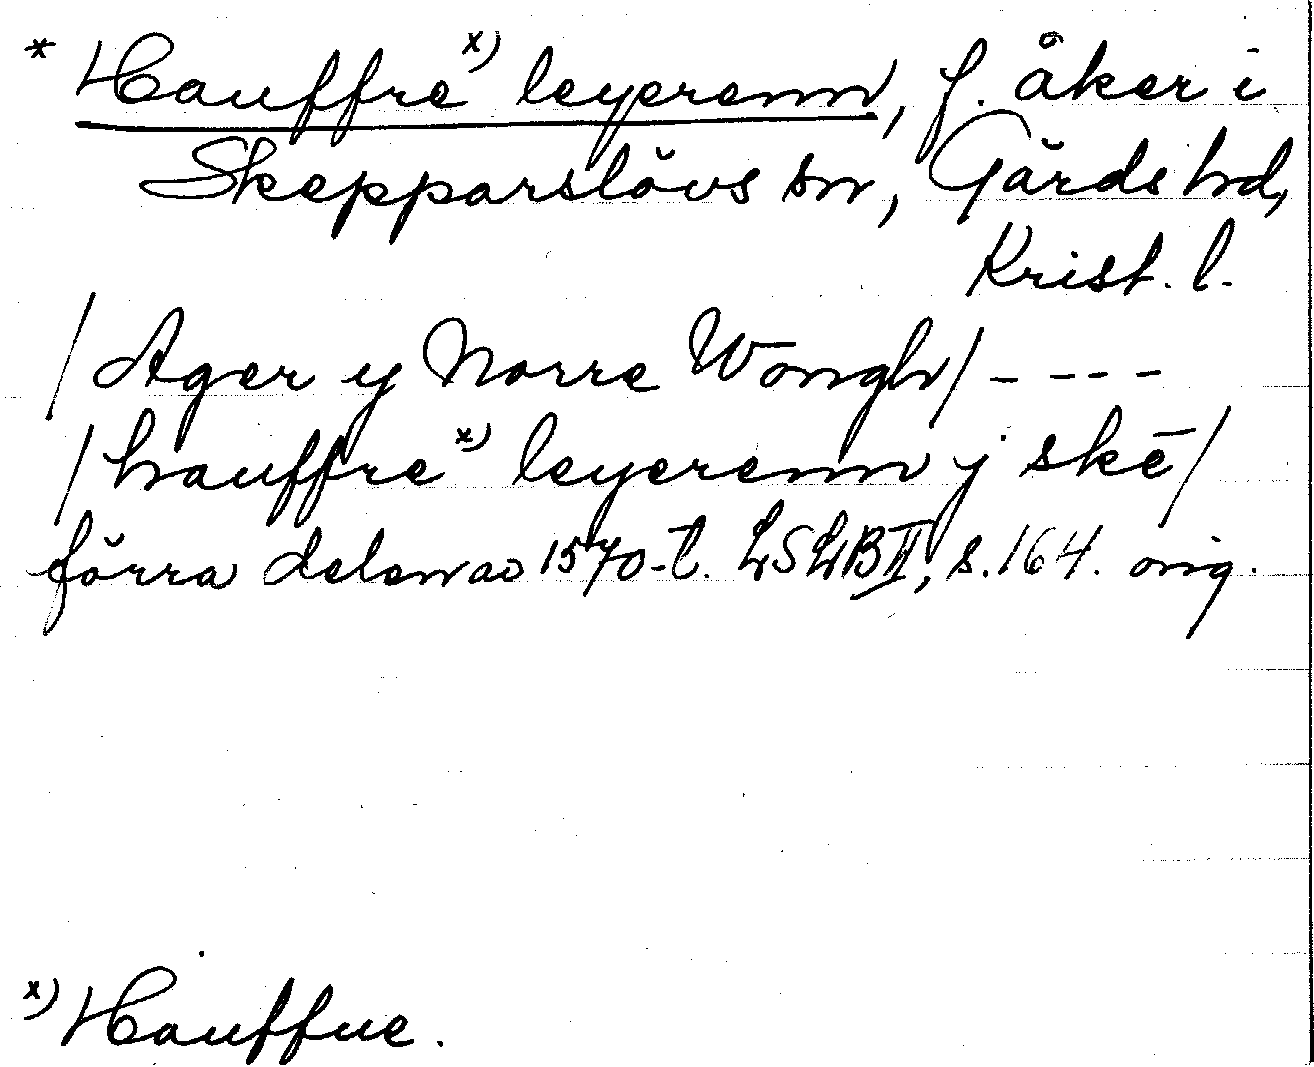 * Hauffre x) leyerenn, f. åker i
Skepparslövs sn, Gärds hd,
Krist. l.
/Ager y Norre Wongh/ - - - -
/hauffre x) leyerenn j skē/
förra delen av 1570-t. LSLB II, s. 164. orig.
x) Hauffue.